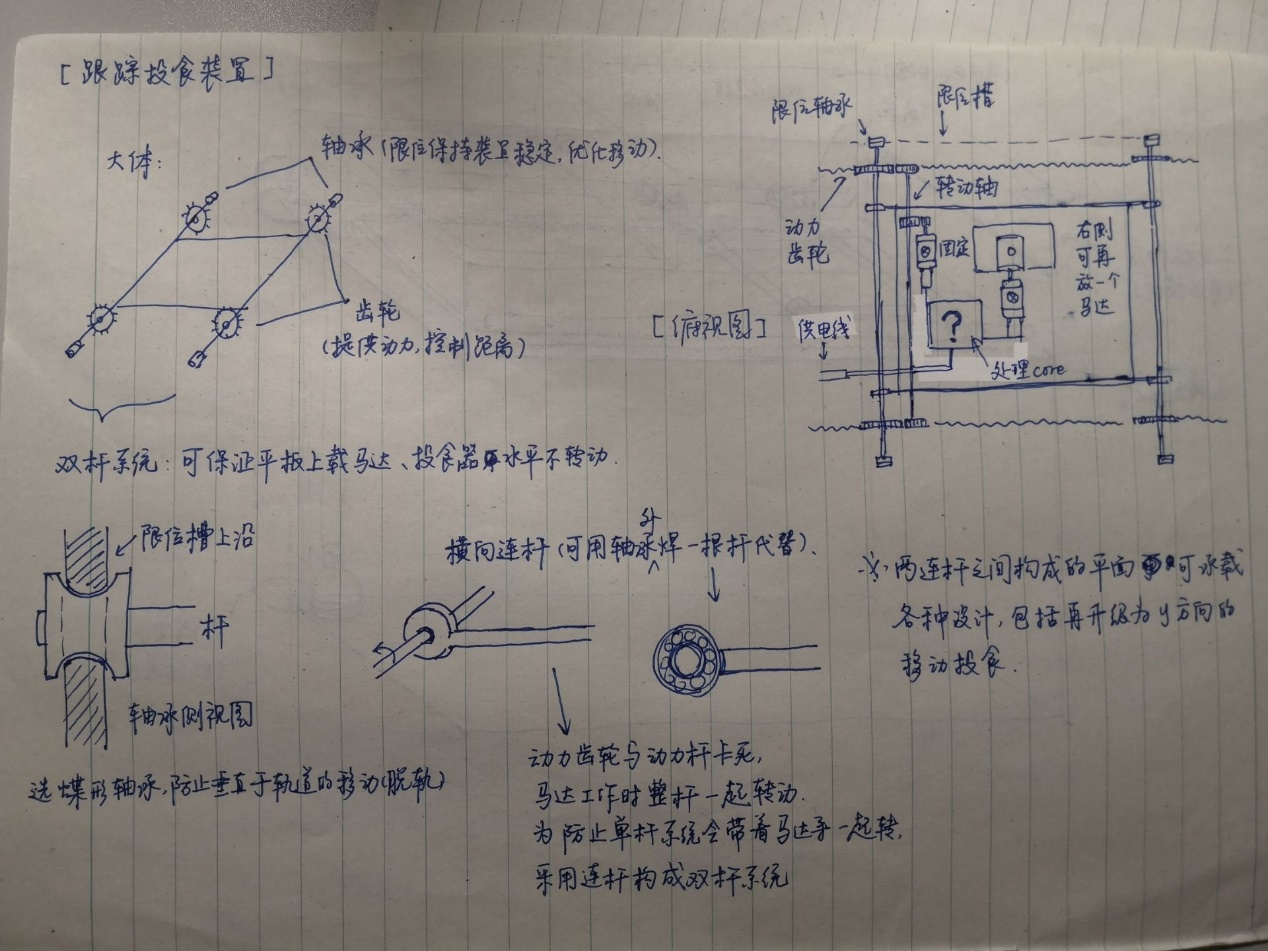 [跟踪投食装置]
大体:
轴承(限位保持装置稳定,优化移动).
齿轮
(提供动力,控制距离)
双杆系统:可保证平板上载马达、投食器水平不转动.
限位轴承
限位槽
转动轴
动力
齿轮
固定
右侧
可再
放一个
马达
[俯视图]
供电线
?
处理core
限位槽上沿
杆
轴承侧视图
选蝶形轴承,防止垂直于轨道的移动(脱轨)
横向连杆(可用轴承外焊一根杆代替).
动力齿轮与动力杆卡死,
马达工作时整杆一起转动.
为防止单杆系统会带着马达一起转,
采用连杆构成双杆系统
※两连杆之间构成的平面可承载
各种设计,包括再升级为y方向的
移动投食.